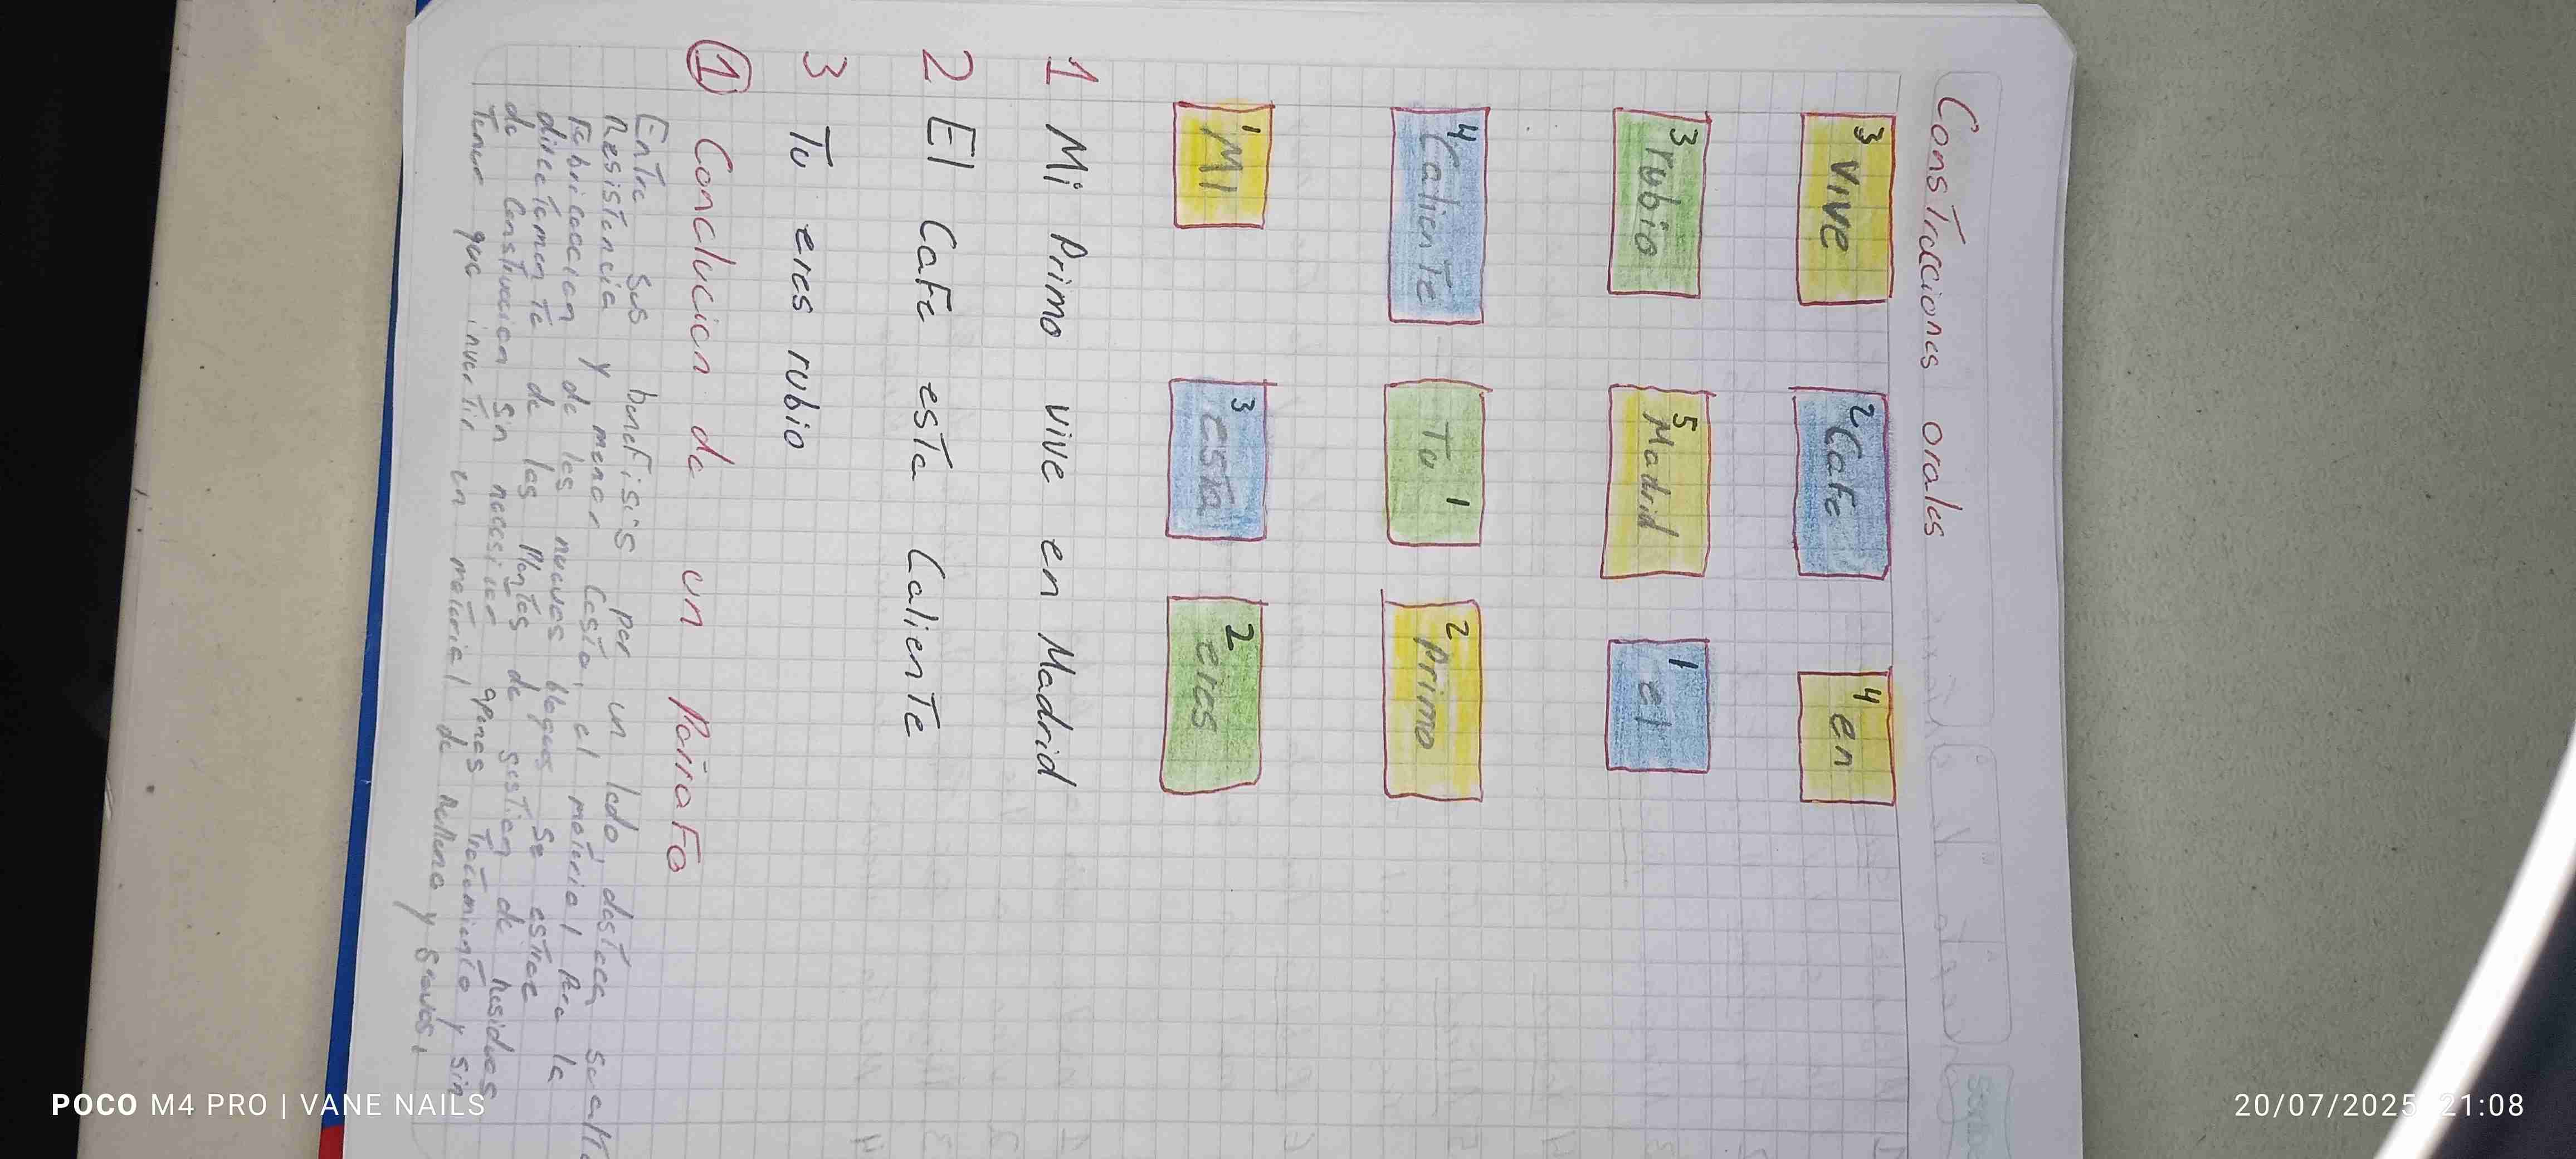 Construcciones orales
3 vive 2 Cafe 4 en
3 rubio 5 Madrid 1 el
4 Caliente Tu 1 2 Primo
1 Mi 3 esta 2 eres
1 Mi Primo vive en Madrid
2 El Cafe esta Caliente
3 Tu eres rubio
1 Conclucion de un Parrafo
Entre sus benefisis por un lado, destaca su alta
Resistencia y menor Costo, el material Para la
Fabricaccion de los nuevos bloques se estrae
directamente de las Plantas de gestion de Residuos
de Construccion sin necesitar apenas Tratamiento y sin
Tener que invertir en material de Relleno y
POCO M4 PRO | VANE NAILS
20/07/2025 21:08